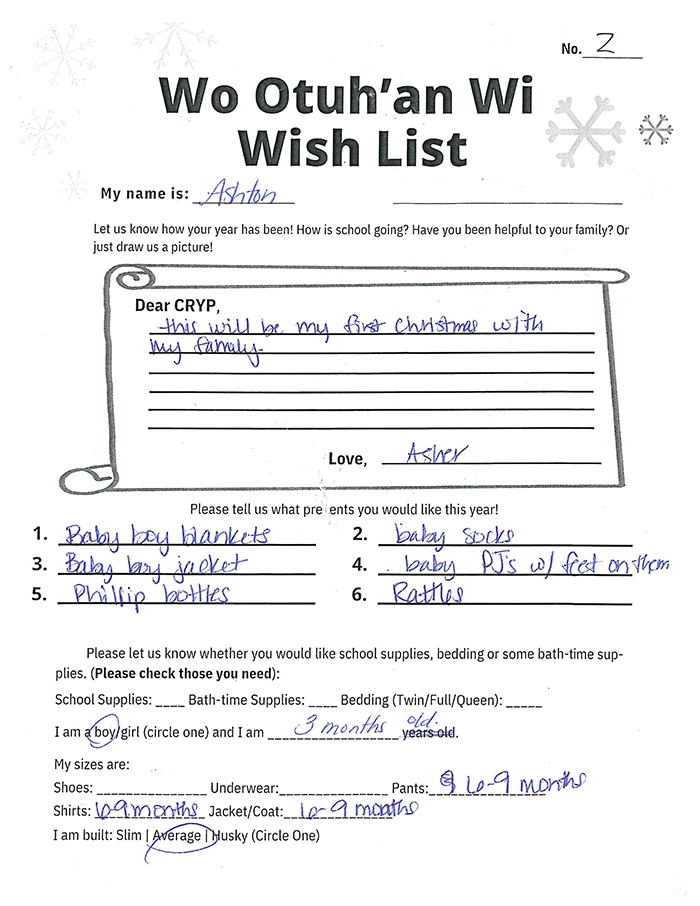 No. 2
Wo Otuh'an Wi
Wish List
My name is: Ashton
Let us know how your year has been! How is school going? Have you been helpful to your family? Or
just draw us a picture!
Dear CRYP,
this will be my first Christmas with
my family.
Love, Asher
Please tell us what pre ents you would like this year!
1. Baby boy blankets 2. baby socks
3. Baby boy jacket 4. baby PJ's w/ feet on them
5. Phillip bottles 6. Rattles
Please let us know whether you would like school supplies, bedding or some bath-time sup-
plies. (Please check those you need):
School Supplies: ____ Bath-time Supplies: ____ Bedding (Twin/Full/Queen): _____
I am a boy/girl (circle one) and I am 3 months old. years old.
My sizes are:
Shoes: ______________ Underwear: ______________ Pants: 6-9 months
Shirts: 6-9 months Jacket/Coat: 6-9 months
I am built: Slim | Average | Husky (Circle One)